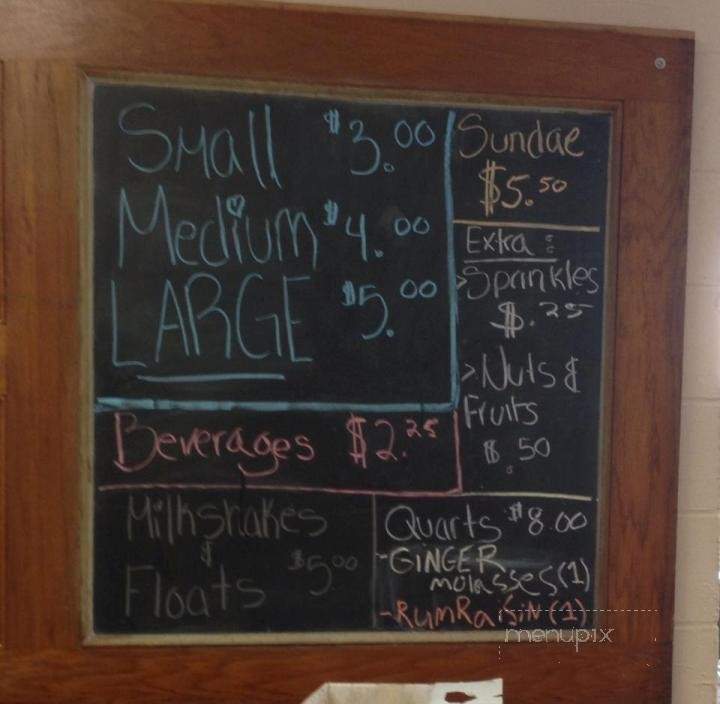 Small $3.00
Medium $4.00
LARGE $5.00
Sundae
$5.50
Extra:
>Sprinkles
$.25
>Nuts &
Fruits
$.50
Beverages $2.25
Milkshakes
&
Floats $5.00
Quarts $8.00
-GINGER
molasses (1)
-Rum Raisin (1)
menupix